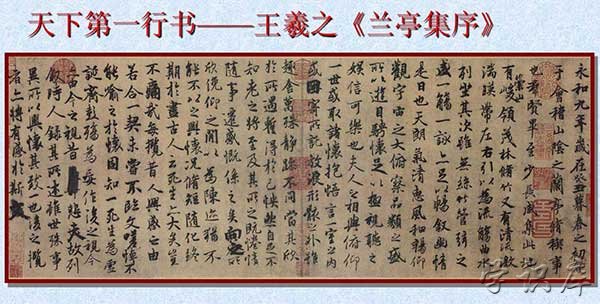 天下第一行书——王羲之《兰亭集序》
永和九年歲在癸丑暮春之初會
于會稽山陰之蘭亭脩稧事
也羣賢畢至少長咸集此地
有崇山峻領茂林脩竹又有清流激
湍暎帶左右引以為流觴曲水
列坐其次雖無絲竹管弦之
盛一觴一詠亦足以暢敘幽情
是日也天朗氣清惠風和暢仰
觀宇宙之大俯察品類之盛
所以遊目騁懷足以極視聽之
娛信可樂也夫人之相與俯仰
一世或取諸懷抱悟言一室之內
或因寄所託放浪形骸之外雖
趣舍萬殊靜躁不同當其欣
於所遇蹔得於己怏然自足不
知老之將至及其所之既惓情
隨事遷感慨係之矣向之所
欣俛仰之閒以為陳迹猶不
能不以之興懷況脩短隨化終
期於盡古人云死生亦大矣豈
不痛哉每攬昔人興感之由
若合一契未嘗不臨文嗟悼不
能喻之於懷固知一死生為虛
誕齊彭殤為妄作後之視今
亦由今之視昔悲夫故列
敘時人錄其所述雖世殊事
異所以興懷其致一也後之攬
者亦將有感於斯文
学识库